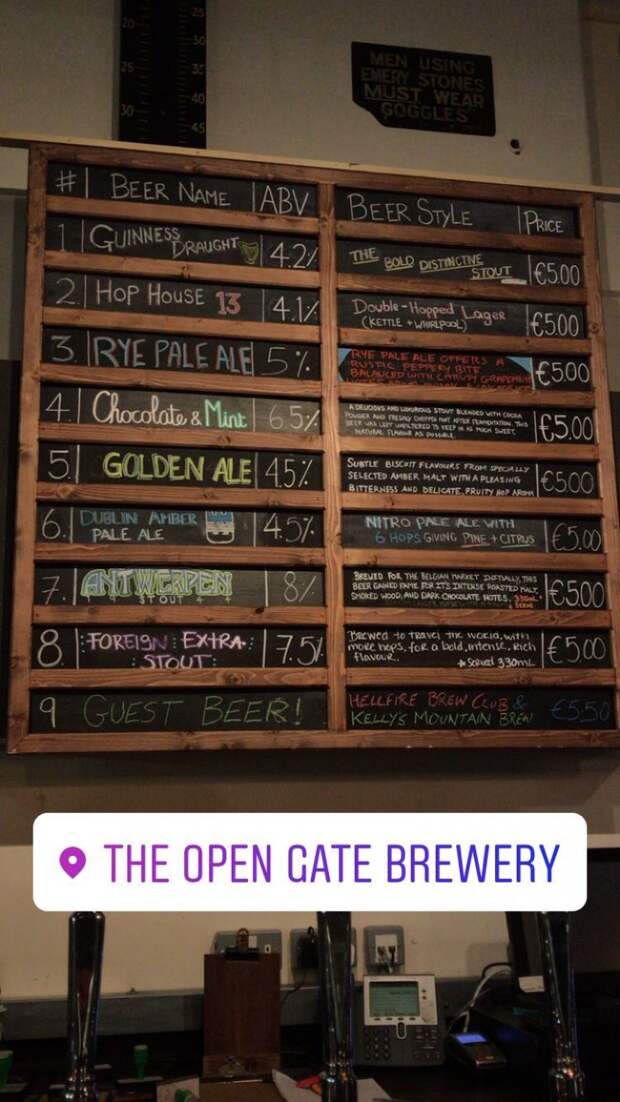 20
25
25
35
30
40
45
MEN USING
EMERY STONES
MUST WEAR
GOGGLES
# BEER NAME ABV BEER STYLE PRICE
1 GUINNESS DRAUGHT 4.2% THE BOLD DISTINCTIVE STOUT €5.00
2. HOP HOUSE 13 4.1% Double-Hopped Lager €5.00
(KETTLE + WHIRLPOOL)
3. RYE PALE ALE 5% RYE PALE ALE OFFERS A €5.00
RUSTIC PEPPERY BITE
BALANCED WITH CITRUSY GRAPEFRUIT
4. Chocolate & Mint 6.5% A DELICIOUS AND LUXURIOUS STOUT BLENDED WITH COCOA €5.00
POWDER AND FRESHLY CHOPPED MINT AFTER FERMENTATION. THIS
BEER WAS LEFT UNFILTERED TO KEEP IN AS MUCH SWEET,
NATURAL FLAVOUR AS POSSIBLE.
5. GOLDEN ALE 4.5% SUBTLE BISCUIT FLAVOURS FROM SPECIALLY €5.00
SELECTED AMBER MALT WITH A PLEASING
BITTERNESS AND DELICATE, FRUITY HOP AROMA
6. DUBLIN AMBER 4.5% NITRO PALE ALE WITH €5.00
PALE ALE 6 HOPS GIVING PINE + CITRUS
7. ANTWERPEN 8% BREWED FOR THE BELGIAN MARKET INITIALLY, THIS €5.00
STOUT BEER GAINED FAME FOR ITS INTENSE ROASTED MALT,
SMOKED WOOD, AND DARK CHOCOLATE NOTES. 330ML
SERVE
8. FOREIGN EXTRA 7.5% Brewed to travel the world, with €5.00
STOUT more hops, for a bold, intense, rich
flavour.. * Served 330mL
9 GUEST BEER! HELLFIRE BREW CLUB & €5.50
KELLY'S MOUNTAIN BREW
THE OPEN GATE BREWERY